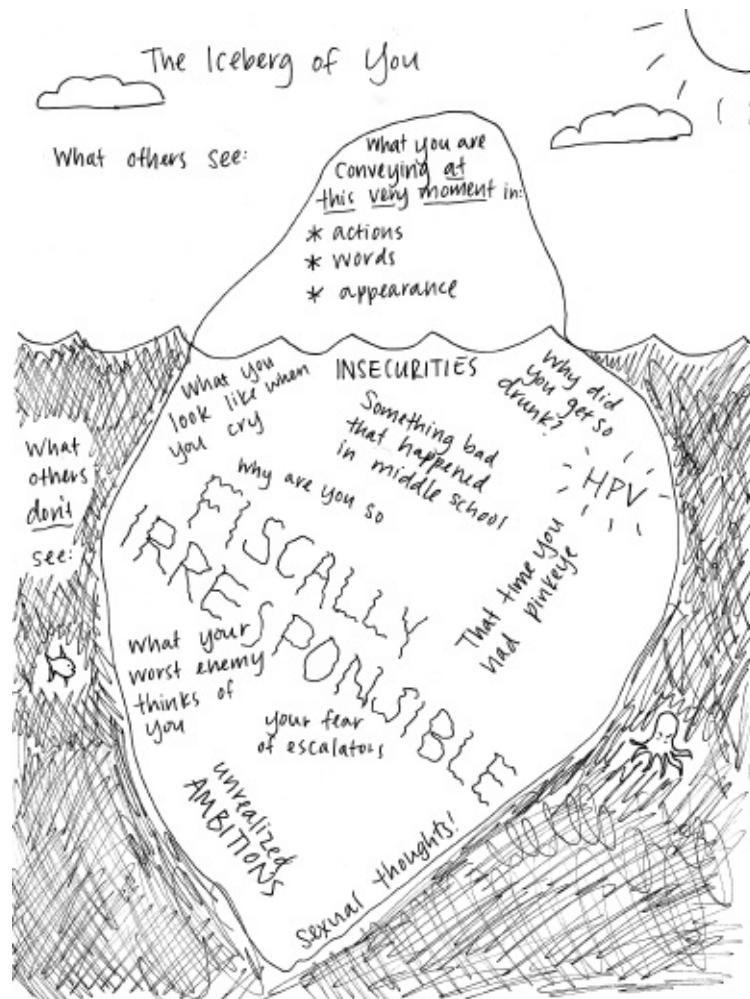 The Iceberg of You
What others see:
What you are
conveying at
this very moment in:
* actions
* words
* appearance
What you
look like when
you cry
INSECURITIES
Why did
you get so
drunk?
Something bad
that happened
in middle school
HPV
What
others
don't
see:
Why are you so
FISCALLY
IRRESPONSIBLE
That time you
had pinkeye
What your
worst enemy
thinks of
you
your fear
of escalators
unrealized
AMBITIONS
sexual thoughts!